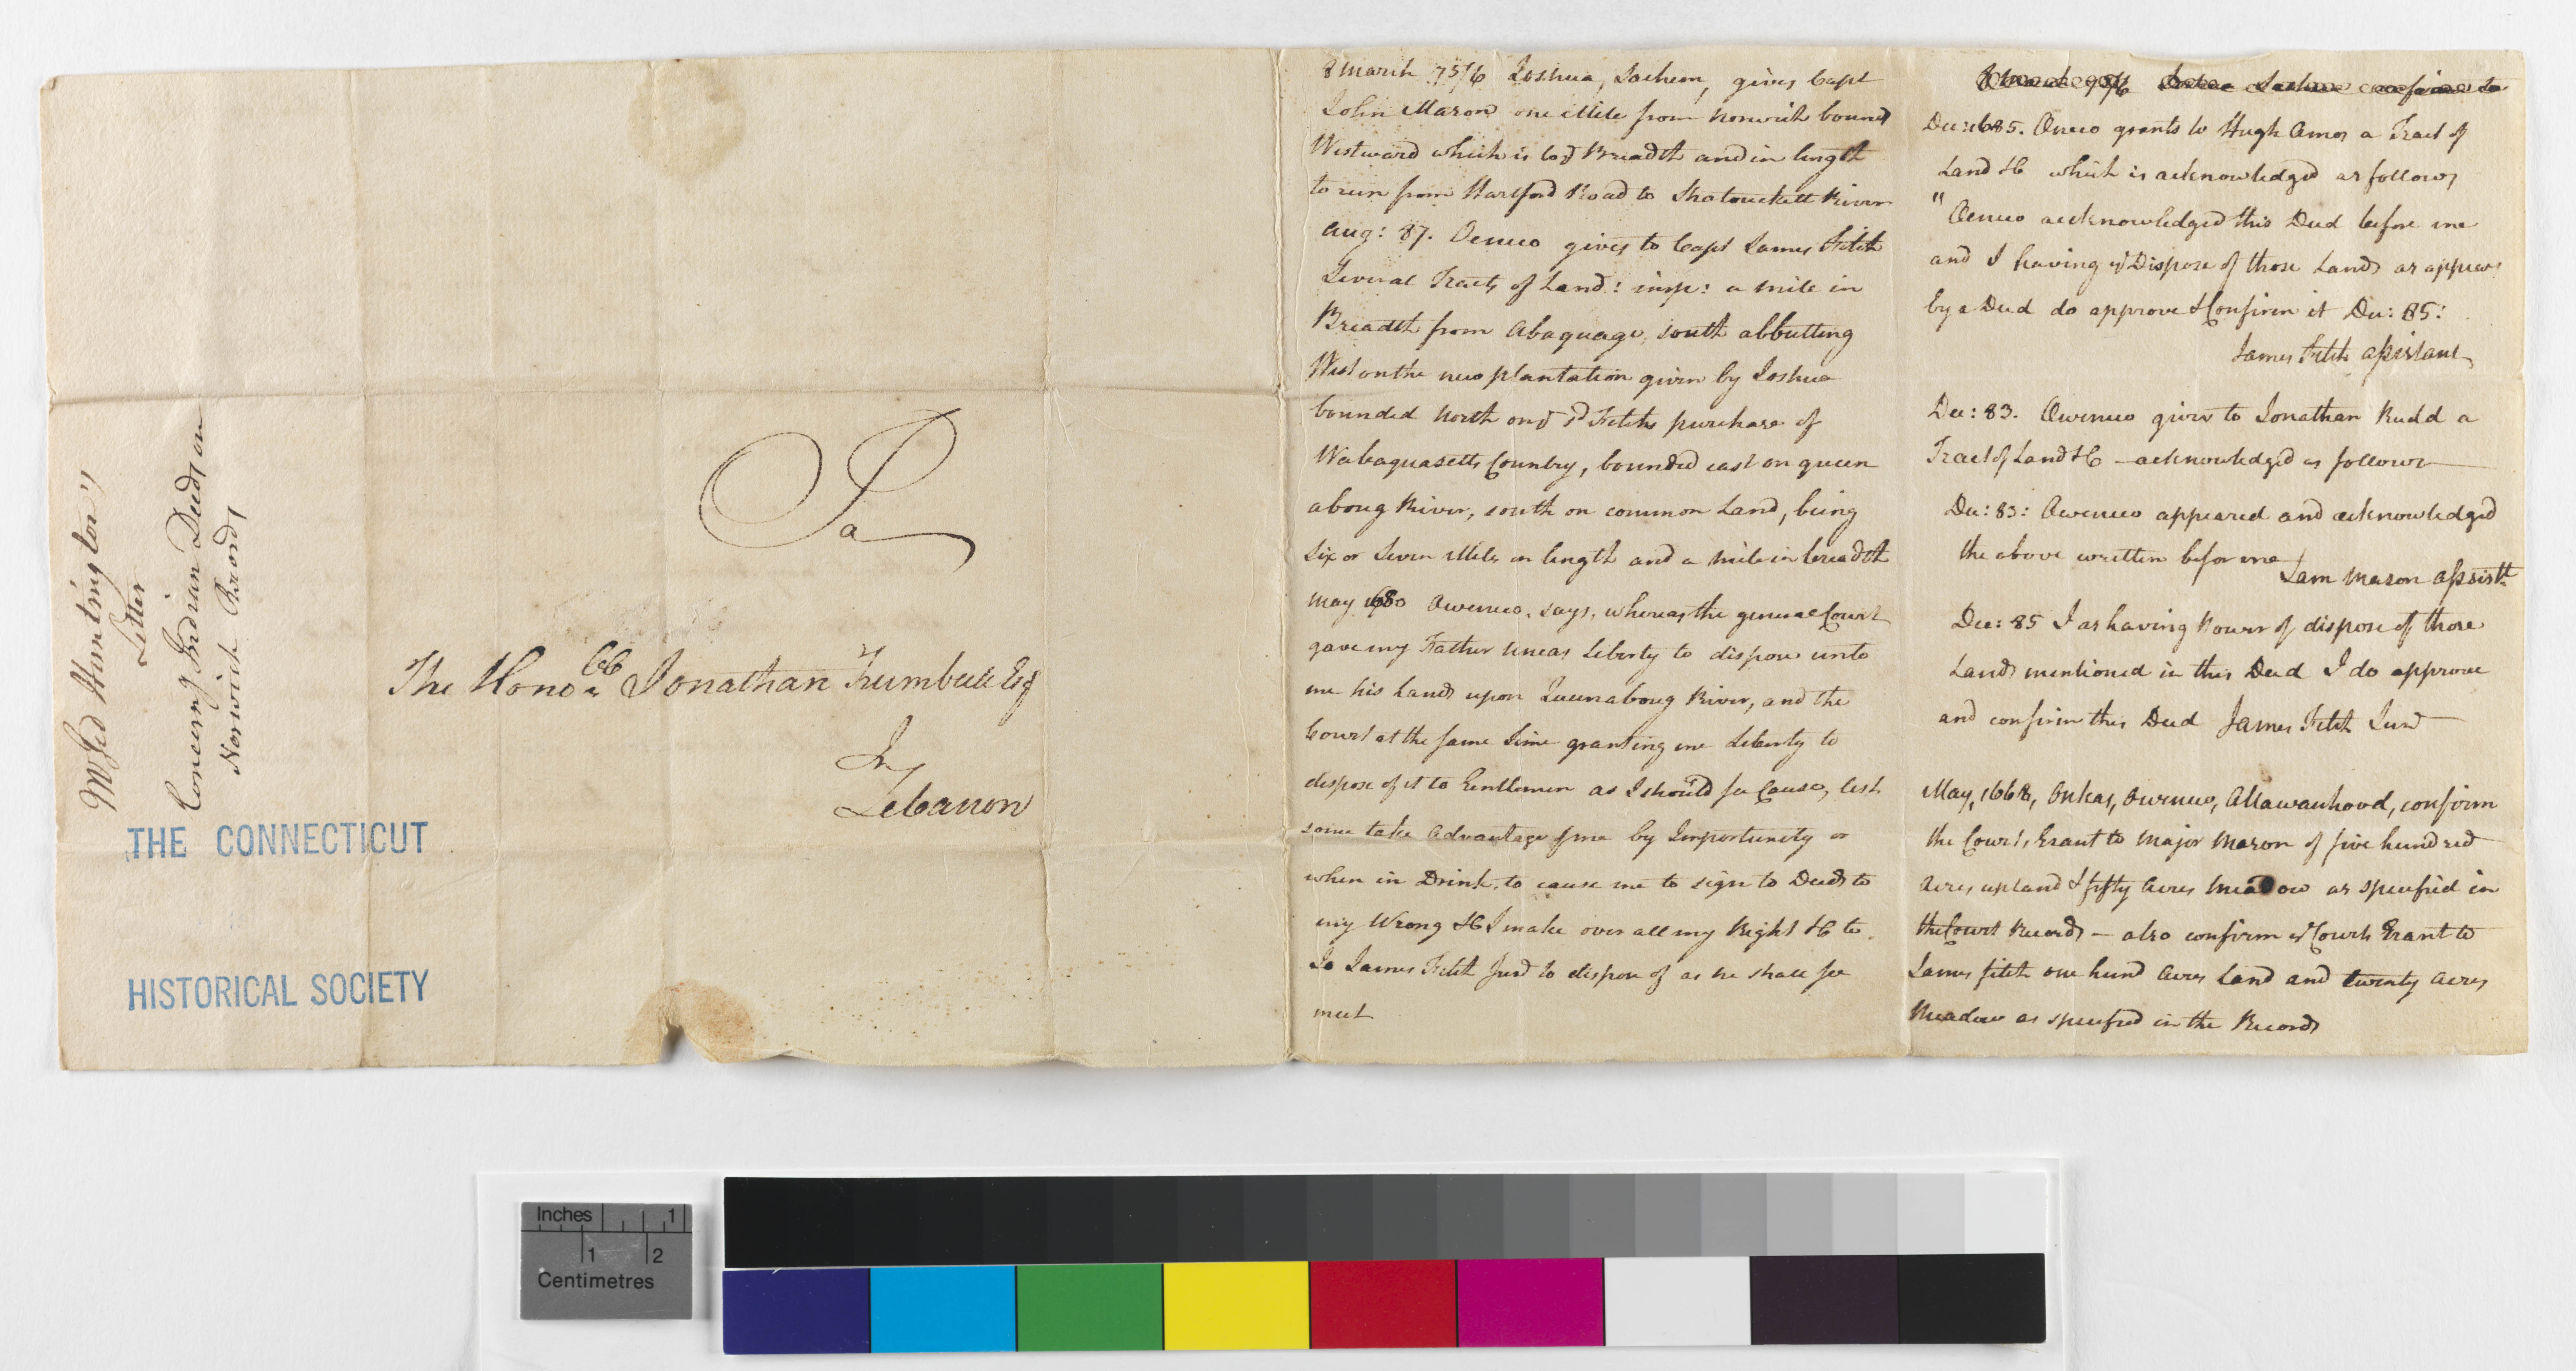 Mr Jed Huntington's
Letter
Concerng Indian Deeds on
Norwich Records
THE CONNECTICUT
HISTORICAL SOCIETY
To
The Honobl Jonathan Trumbull Esq
In
Lebanon
8 March 75/6 Joshua, Sachem, gives Capt
John Mason one Mile from Norwich bounds
Westward which is to be ye Breadth and in length
to run from Hartford Road to Shotouckett River
Aug: 87. Oeneco gives to Capt James Fitch
Several Tracts of Land: imp: a mile in
Breadth from Abaquage, south abbutting
West on the new plantation given by Joshua
bounded North on ye sd Fitchs purchase of
Wabaquasetts Country, bounded east on queen
aboug River, south on common Land, being
Six or Seven Miles in length and a mile in breadth
May 1680 Oweneco, says, whereas the general Court
gave my Father Uncas Liberty to dispose unto
me his Lands upon Quenaboug River, and the
Court at the same Time granting me Liberty to
dispose of it to Gentlemen as I should see Cause, lest
some take Advantage of me by Importunity or
when in Drink, to cause me to sign to Deeds to
my Wrong &c I make over all my Right &c to
to James Fitch Junr to dispose of as he shall see
meet
8 March 75/6 Joshua Sachem confirms to
Dec: 1685. Oneco grants to Hugh Amos a Tract of
Land &c which is acknowledged as follows
"Oeneco acknowledged this Deed before me
and I having ye Dispose of those Lands as appears
by a Deed do approve & Confirm it Dec: 85:
James Fitch Assistant
Dec: 83. Oweneco gives to Jonathan Rudd a
Tract of Land &c - acknowledged as follows
Dec: 83: Oweneco appeared and acknowledged
the above written before me
Sam Mason Assistt
Dec: 85 I as having Power of dispose of those
Lands mentioned in this Deed I do approve
and confirm this Deed James Fitch Junr
May, 1668, Onkas, Owneco, Attawanhood, confirm
the Courts Grant to Major Mason of five hundred
Acres upland & fifty Acres Meadow as specified in
the Court Records - also confirm ye Courts Grant to
James fitch one hund Acres Land and twenty Acres
Meadow as specified in the Records
Inches 1
1 2
Centimetres